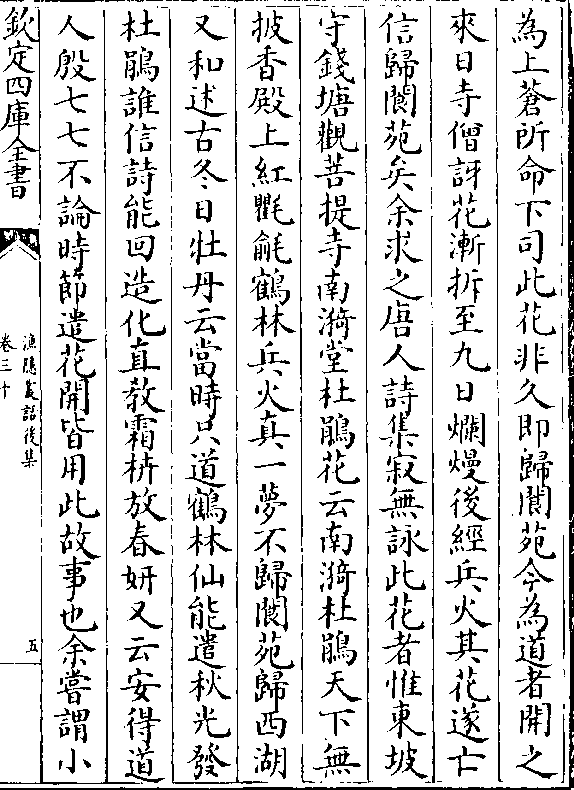 為上蒼所命下司此花非久即歸閬苑今為道者開之
來日寺僧訝花漸拆至九日爛熳後經兵火其花遂亡
信歸閬苑矣余求之唐人詩集寂無詠此花者惟東坡
守錢塘觀菩提寺南漪堂杜鵑花云南漪杜鵑天下無
披香殿上紅氍毹鶴林兵火真一夢不歸閬苑歸西湖
又和述古冬日牡丹云當時只道鶴林仙能遣秋光發
杜鵑誰信詩能回造化直教霜枿放春妍又云安得道
人殷七七不論時節遣花開皆用此故事也余嘗謂小
欽定四庫全書
漁隱叢話後集
卷三十
五